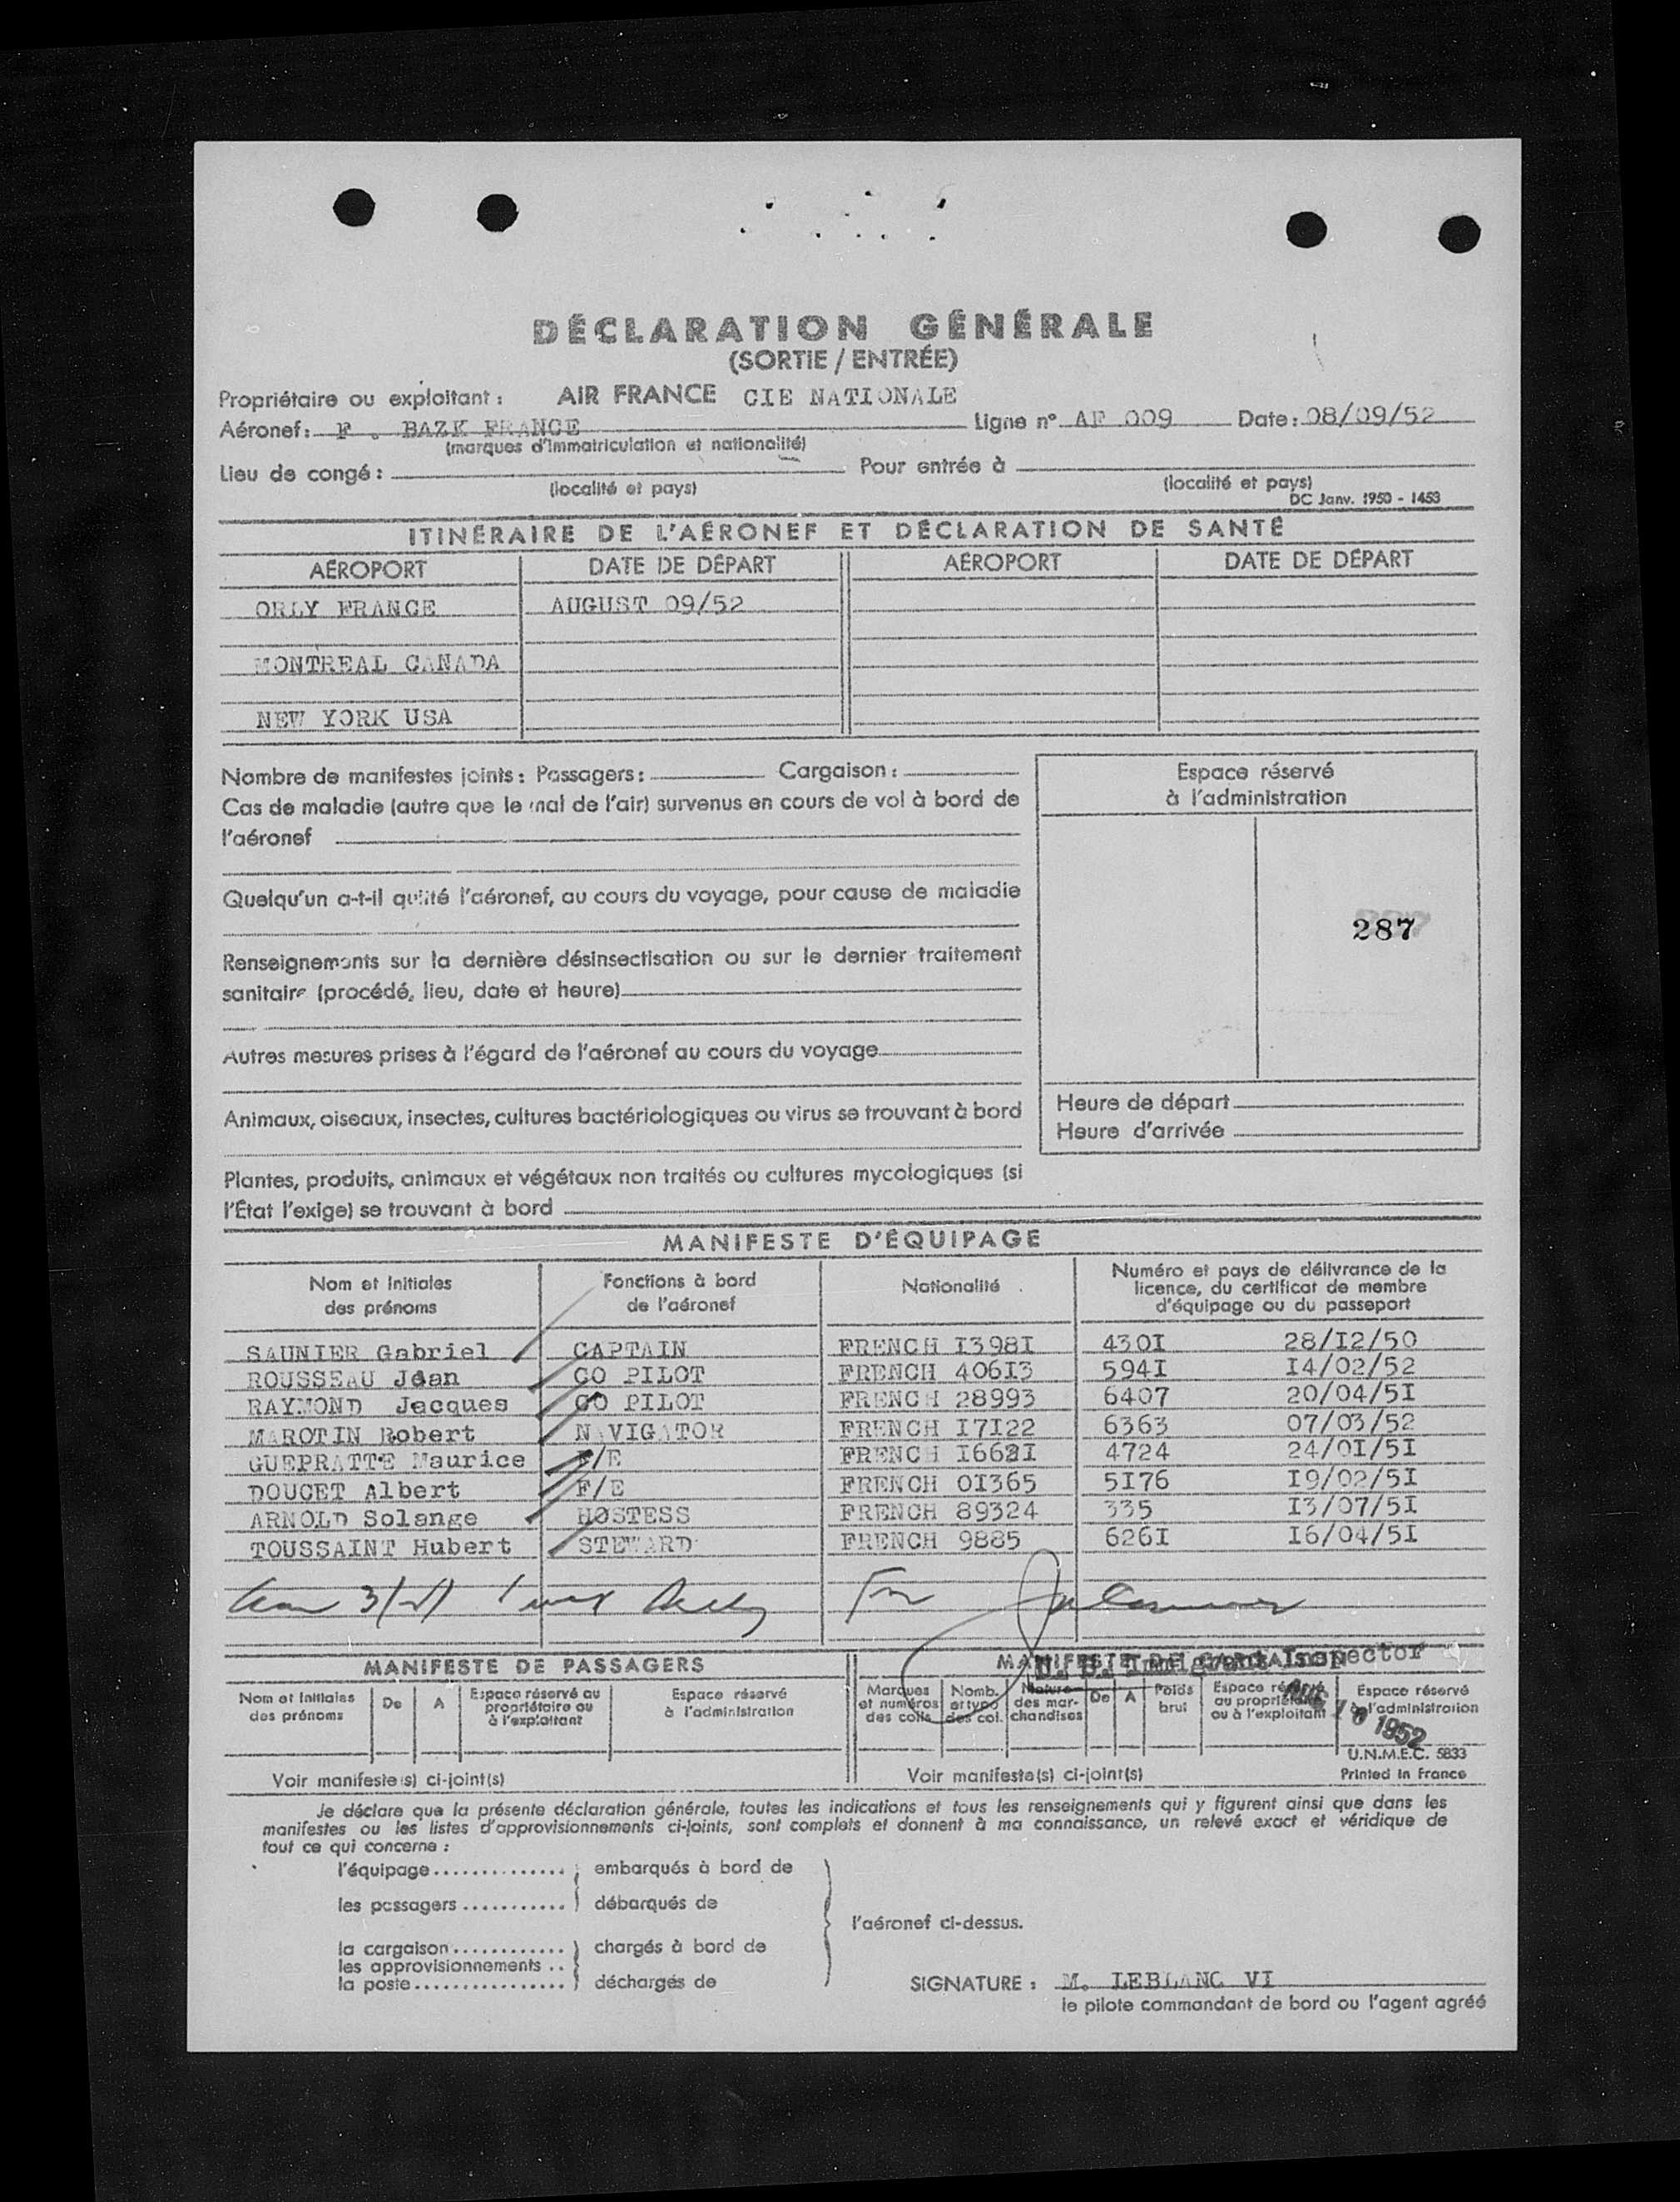 DÉCLARATION GÉNÉRALE
(SORTIE / ENTRÉE)
Propriétaire ou exploitant : AIR FRANCE CIE NATIONALE
Aéronef: F . BAZK FRANCE Ligne n° AF 009 Date: 08/09/52
(marques d'immatriculation et nationalité)
Lieu de congé : Pour entrée à
(localité et pays) (localité et pays)
DC Janv. 1950 - 1453
ITINÉRAIRE DE L'AÉRONEF ET DÉCLARATION DE SANTÉ
AÉROPORT DATE DE DÉPART AÉROPORT DATE DE DÉPART
ORLY FRANCE AUGUST 09/52
MONTREAL CANADA
NEW YORK USA
Nombre de manifestes joints : Passagers : Cargaison :
Cas de maladie (autre que le mal de l'air) survenus en cours de vol à bord de
l'aéronef
Quelqu'un a-t-il quitté l'aéronef, au cours du voyage, pour cause de maladie
Renseignements sur la dernière désinsectisation ou sur le dernier traitement
sanitaire (procédé, lieu, date et heure)
Autres mesures prises à l'égard de l'aéronef au cours du voyage
Animaux, oiseaux, insectes, cultures bactériologiques ou virus se trouvant à bord
Plantes, produits, animaux et végétaux non traités ou cultures mycologiques (si
l'État l'exige) se trouvant à bord
Espace réservé
à l'administration
287
Heure de départ
Heure d'arrivée
MANIFESTE D'ÉQUIPAGE
Nom et Initiales
des prénoms
Fonctions à bord
de l'aéronef
Nationalité
Numéro et pays de délivrance de la
licence, du certificat de membre
d'équipage ou du passeport
SAUNIER Gabriel CAPTAIN FRENCH I398I 430I 28/I2/50
ROUSSEAU Jean CO PILOT FRENCH 406I3 594I I4/02/52
RAYMOND Jacques CO PILOT FRENCH 28993 6407 20/04/5I
MAROTIN Robert NAVIGATOR FRENCH I7I22 6363 07/03/52
GUEPRATTE Maurice F/E FRENCH 4724 24/0I/5I
DOUCET Albert F/E FRENCH 0I365 5I76 I9/02/5I
ARNOLD Solange HOSTESS FRENCH 89324 335 I3/07/5I
TOUSSAINT Hubert STEWARD FRENCH 9885 626I I6/04/5I
U. S. Immigrant Inspector
MANIFESTE DE PASSAGERS
Nom et Initiales
des prénoms
De A
Espace réservé au
propriétaire ou
à l'exploitant
Espace réservé
à l'administration
Voir manifeste(s) ci-joint(s)
Marques
et numéros
des colis
Nomb.
et type
des col.
Nature
des mar-
chandises
De A
Poids
brut
Espace réservé
au propriétaire
ou à l'exploitant
Espace réservé
à l'administration
1952
U.N.M.E.C. 5833
Voir manifeste(s) ci-joint(s) Printed in France
Je déclare que la présente déclaration générale, toutes les indications et tous les renseignements qui y figurent ainsi que dans les
manifestes ou les listes d'approvisionnements ci-joints, sont complets et donnent à ma connaissance, un relevé exact et véridique de
tout ce qui concerne :
l'équipage .............. embarqués à bord de
les passagers ........... débarqués de
l'aéronef ci-dessus.
la cargaison ............ chargés à bord de
les approvisionnements ..
la poste ................ déchargés de
SIGNATURE : M. LEBLANC VI
le pilote commandant de bord ou l'agent agréé